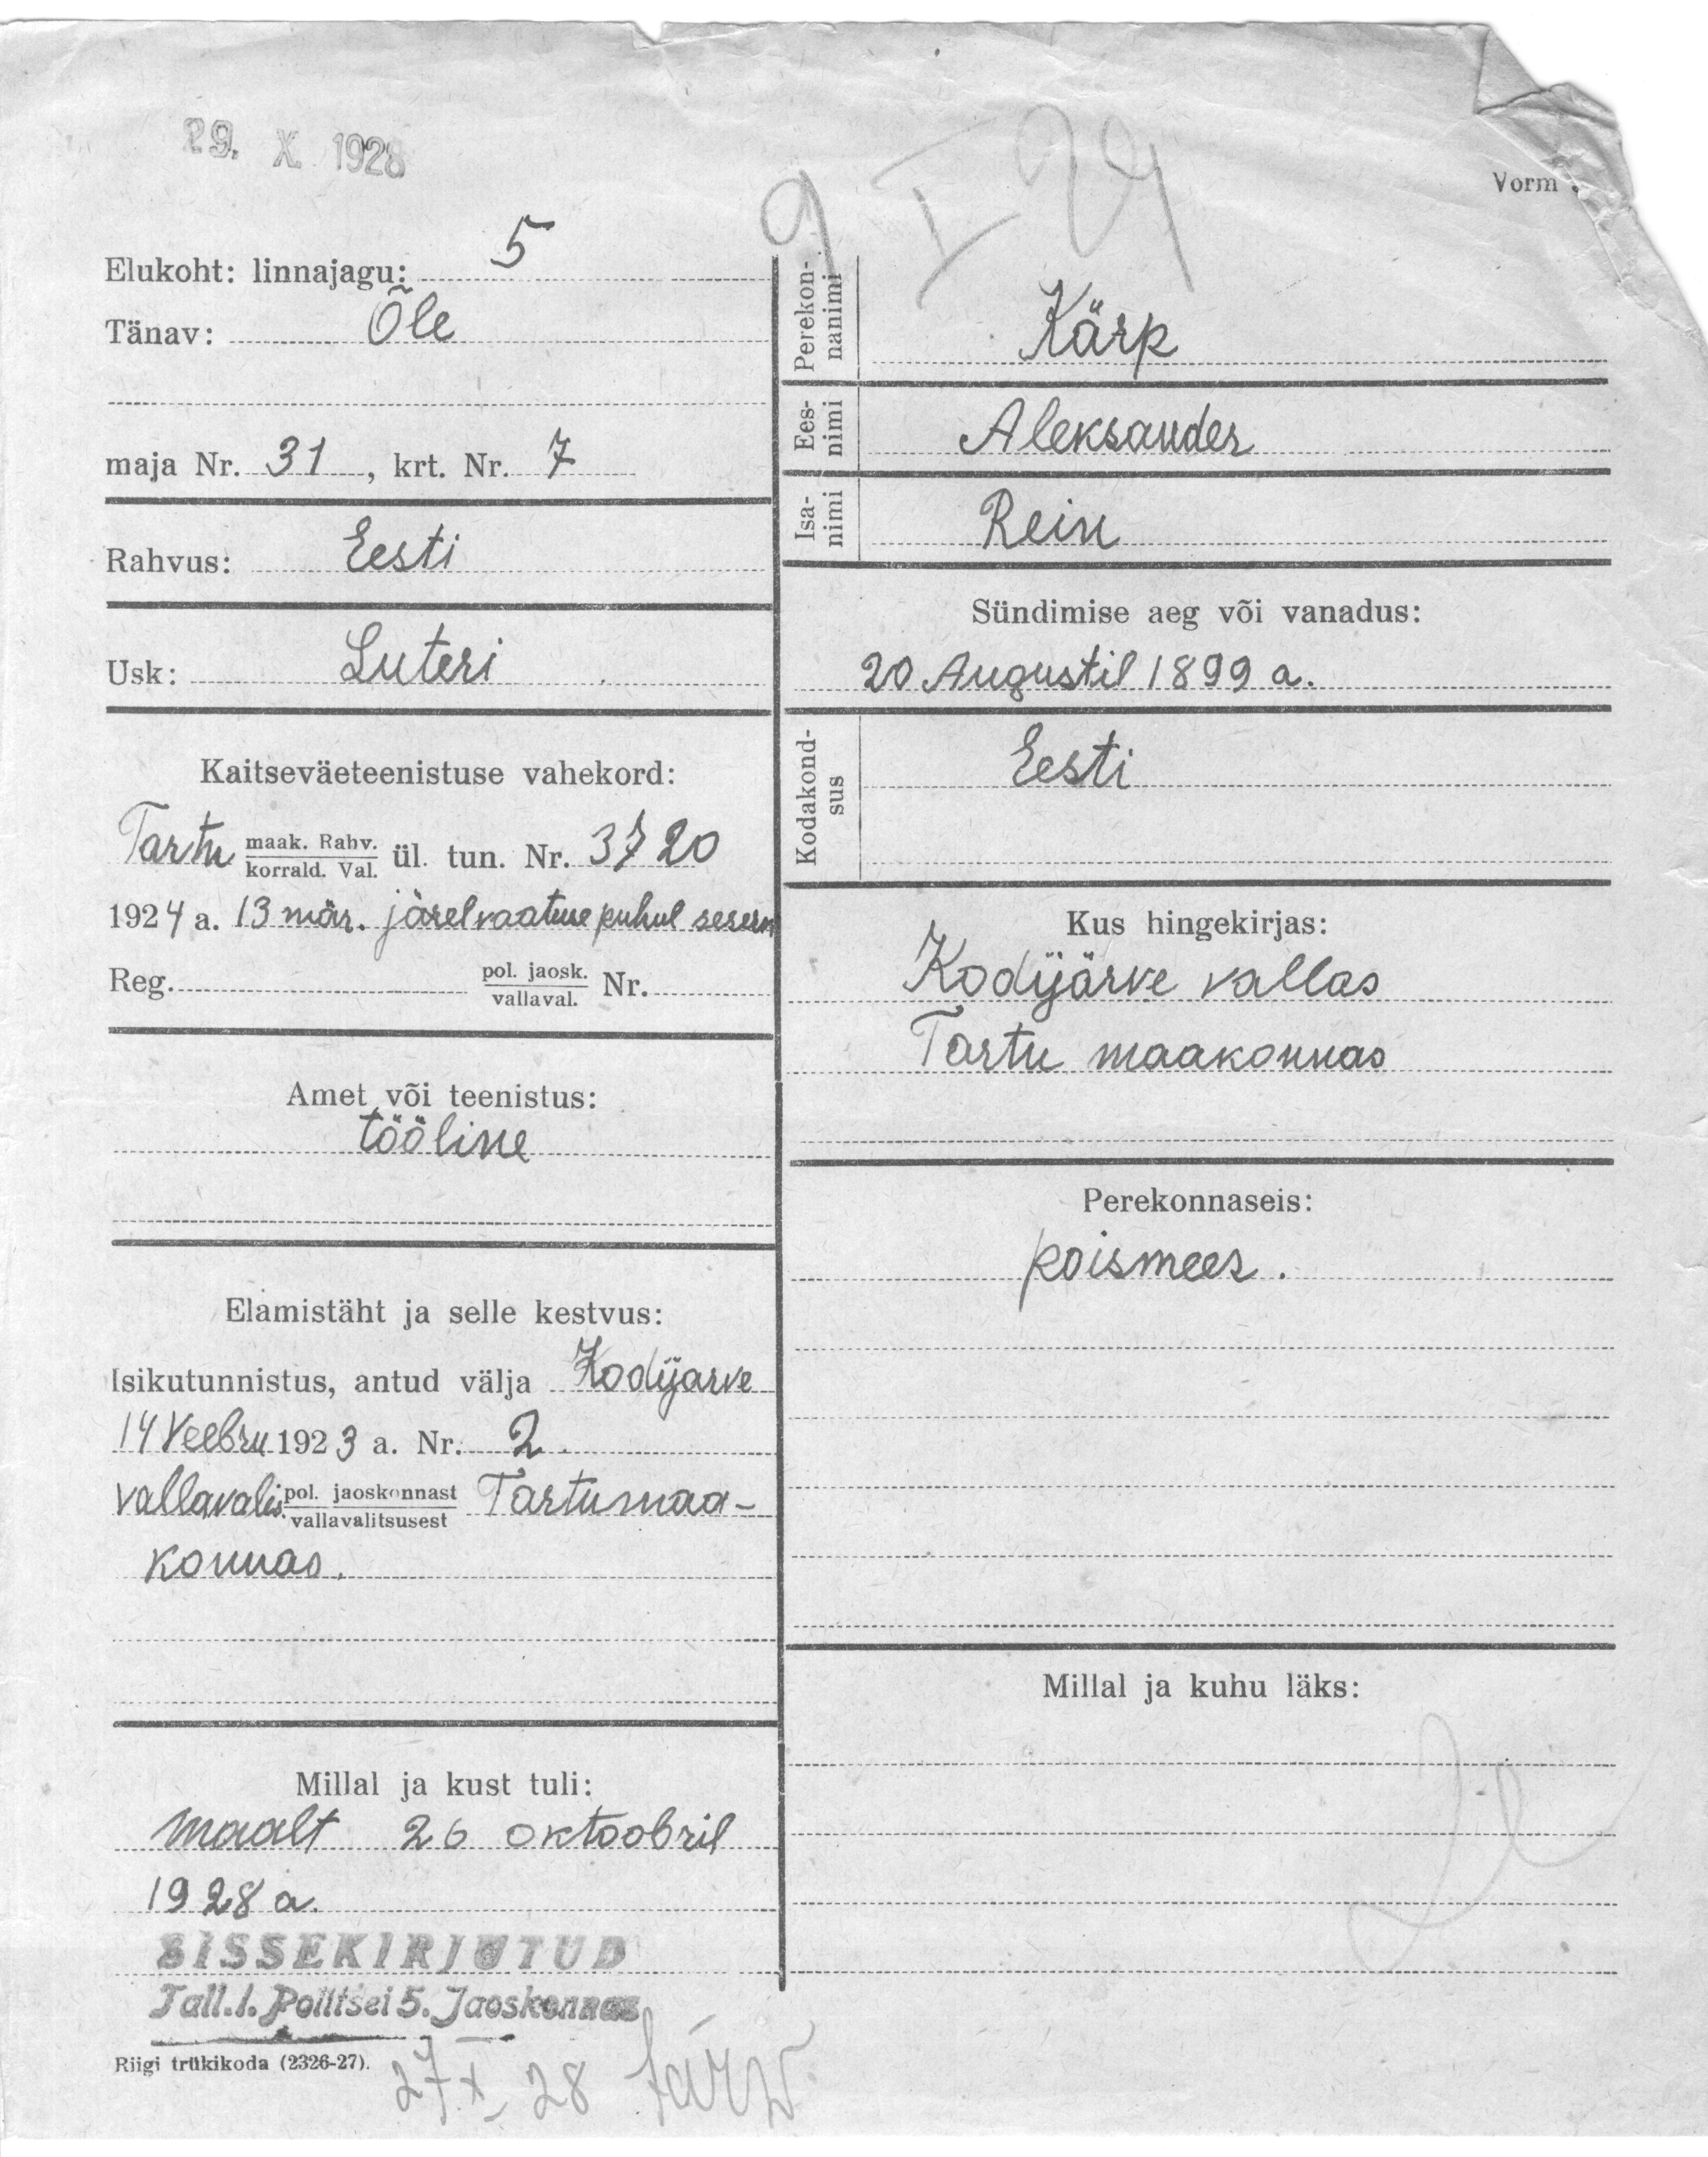 29. X 1928
9 I 29
Vorm
Elukoht: linnajagu: 5
Tänav: Õle
maja Nr. 31, krt. Nr. 7
Rahvus: Eesti
Usk: Luteri
Kaitseväeteenistuse vahekord:
Tartu maak. Rahv. korrald. Val. ül. tun. Nr. 3720
1924 a. 13 mär. järelvaatuse puhul
Reg. pol. jaosk. vallaval. Nr.
Amet või teenistus:
tööline
Elamistäht ja selle kestvus:
Isikutunnistus, antud välja Kodijarve
14 Veebru 1923 a. Nr. 2
vallavalis. pol. jaoskonnast vallavalitsusest Tartumaa-
konnas.
Millal ja kust tuli:
Maalt 26 oktoobril
1928 a.
SISSEKIRJUTUD
Tall. l. Politsei 5. Jaoskonnas
Riigi trükikoda (2326-27).
27 X 28
Perekon-
nanimi
Kärp
Ees-
nimi
Aleksander
Isa-
nimi
Rein
Sündimise aeg või vanadus:
20 Augustil 1899 a.
Kodakond-
sus
Eesti
Kus hingekirjas:
Kodijärve vallas
Tartu maakonnas
Perekonnaseis:
poismees.
Millal ja kuhu läks: